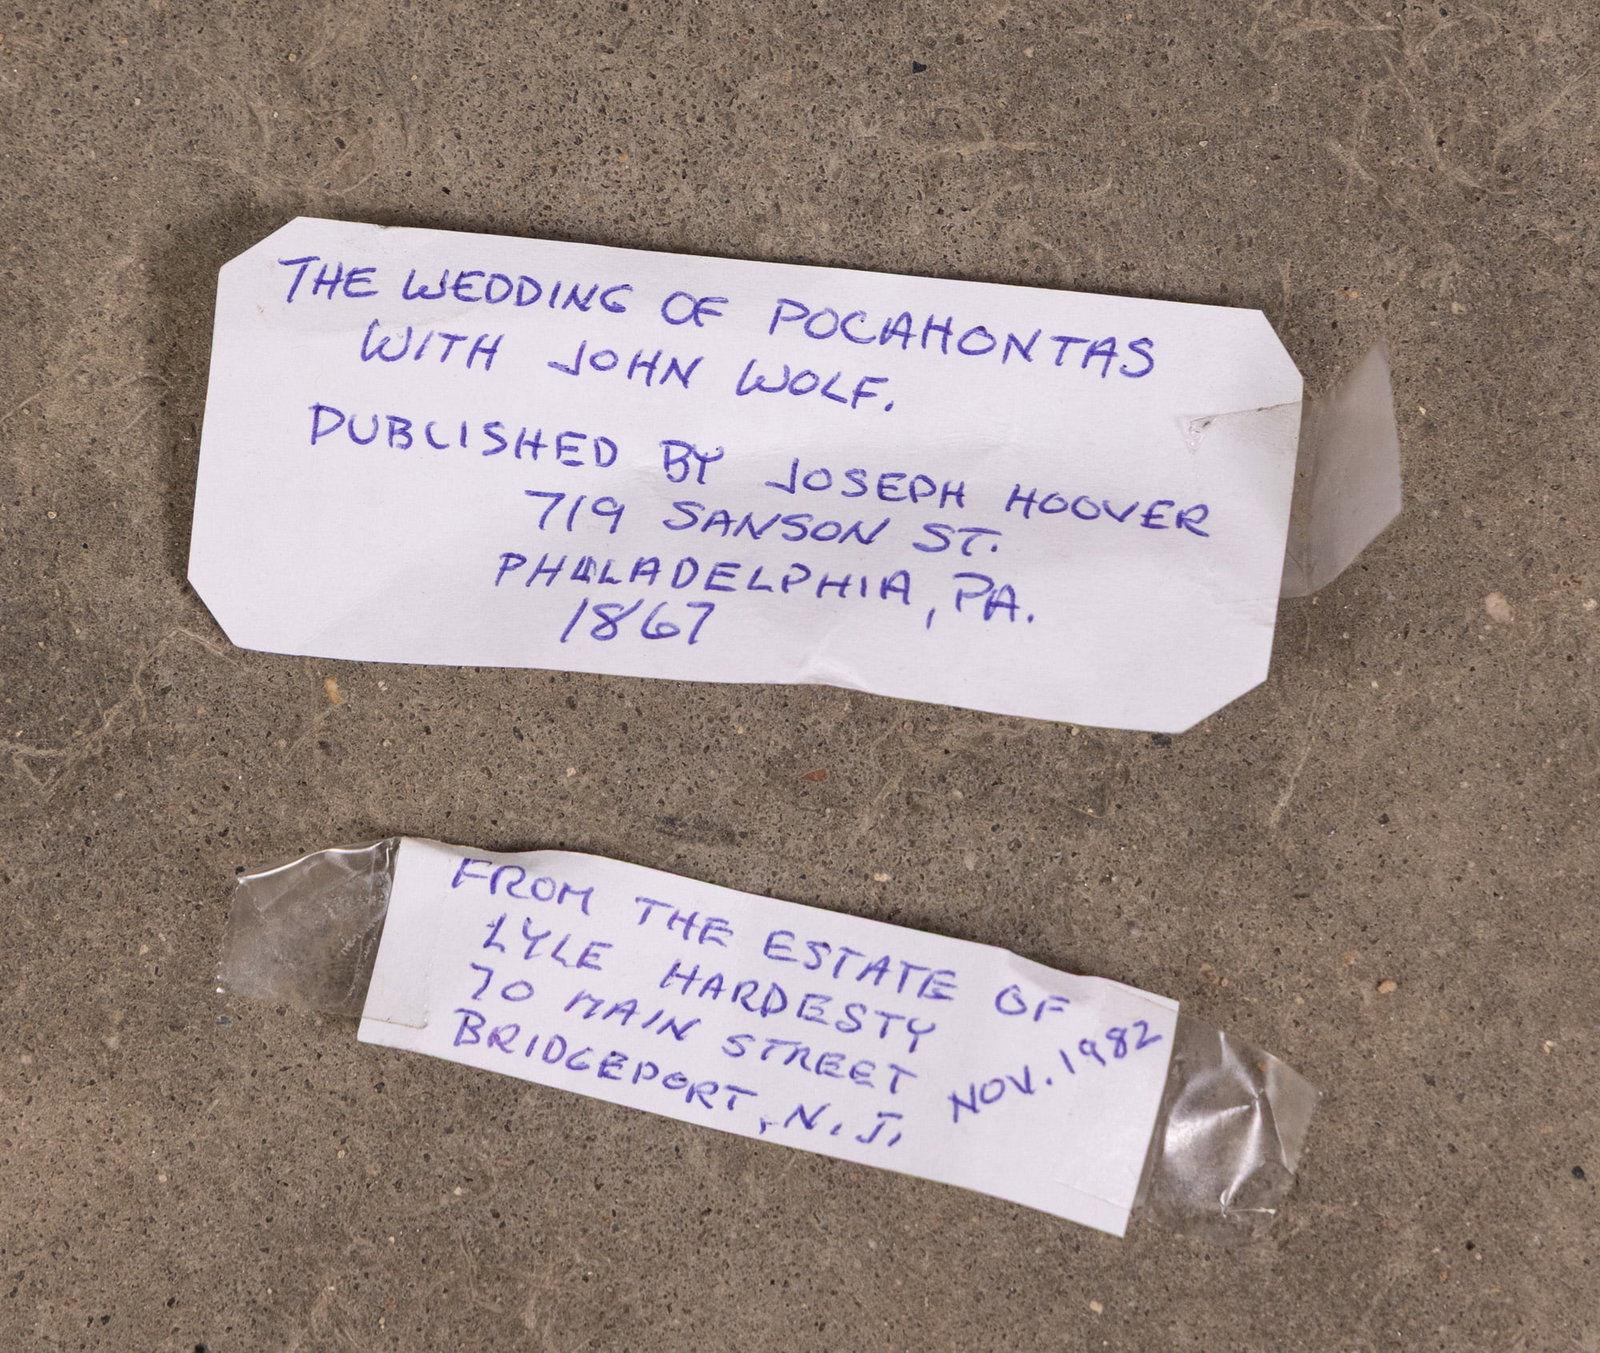 THE WEDDING OF POCAHONTAS
WITH JOHN WOLF.
PUBLISHED BY JOSEPH HOOVER
719 SANSON ST.
PHILADELPHIA, PA.
1867
FROM THE ESTATE OF
LYLE HARDESTY
70 MAIN STREET
BRIDGEPORT, N.J.
NOV. 1982